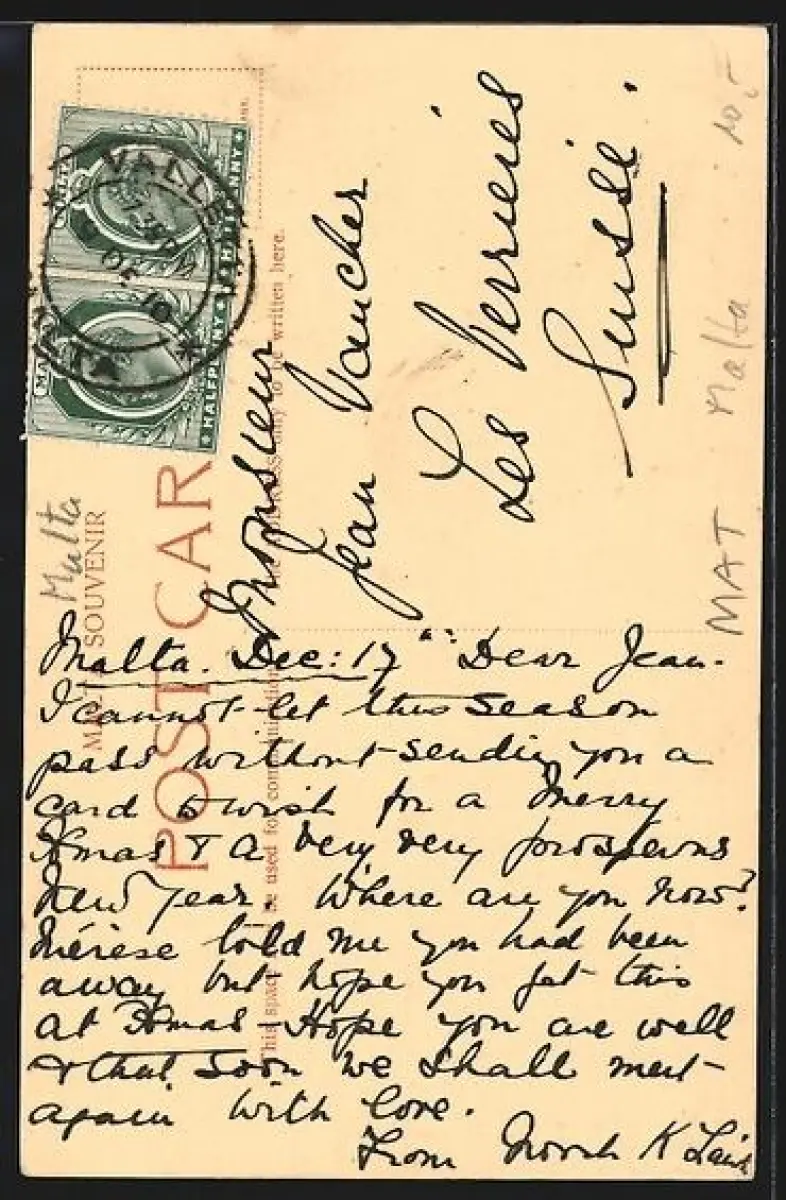 MALTA
HALFPENNY
MALTA
HALFPENNY
VALLETTA
MALTA
Malta
SOUVENIR
POST CARD
This space be used for communication
to be written here.
Monsieur
Jean Vaucher
Les Verrieres
Suisse.
10,-
Malta
MAT
Malta. Dec: 17 Dear Jean.
I cannot let this season
pass without sending you a
card to wish for a Merry
Xmas & a very very prosperous
New Year. Where are you now?
told me you had been
away but hope you get this
at Xmas Hope you are well
& that soon we shall meet
again with love.
From Norah K